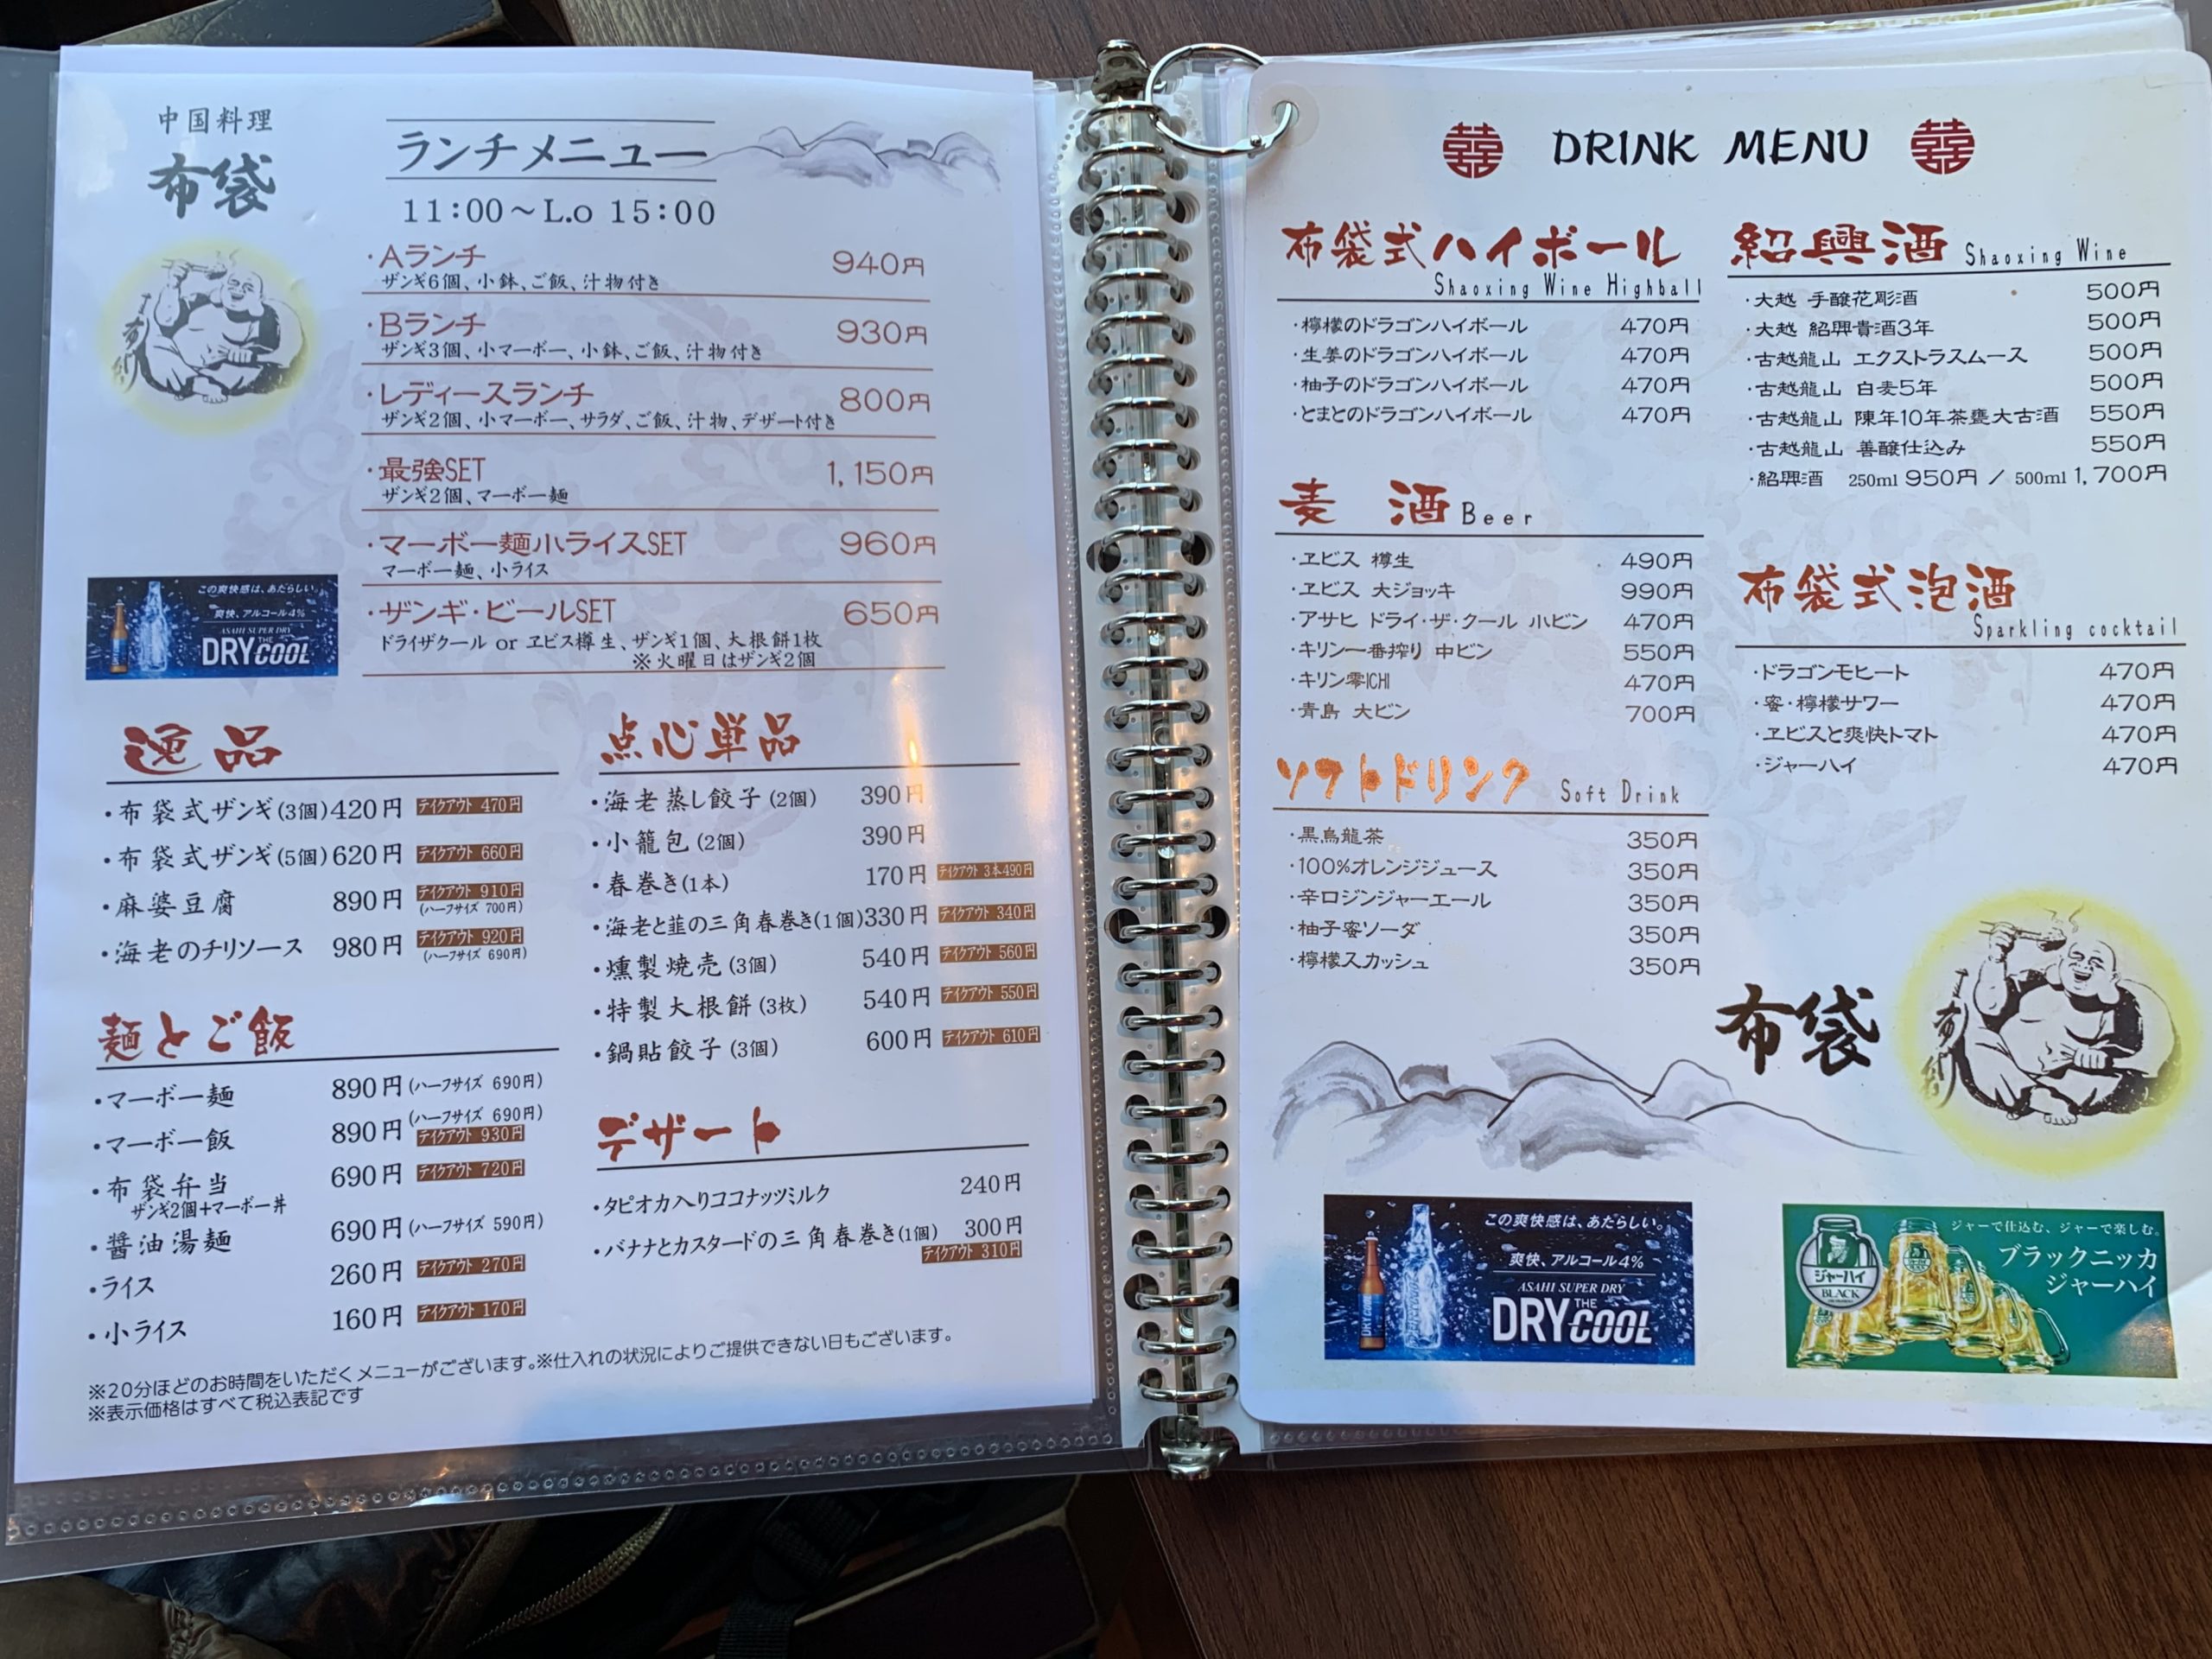 中国料理
布袋
ランチメニュー
11:00～L.o 15:00
・Aランチ 940円
ザンギ6個、小鉢、ご飯、汁物付き
・Bランチ 930円
ザンギ3個、小マーボー、小鉢、ご飯、汁物付き
・レディースランチ 800円
ザンギ2個、小マーボー、サラダ、ご飯、汁物、デザート付き
・最強SET 1,150円
ザンギ2個、マーボー麺
・マーボー麺小ライスSET 960円
マーボー麺、小ライス
・ザンギ・ビールSET 650円
ドライザクール or ヱビス樽生、ザンギ1個、大根餅1枚
※火曜日はザンギ2個
この爽快感は、あたらしい。
爽快、アルコール4%
ASAHI SUPER DRY
DRY THE COOL
逸品
・布袋式ザンギ(3個) 420円 テイクアウト 470円
・布袋式ザンギ(5個) 620円 テイクアウト 660円
・麻婆豆腐 890円 テイクアウト 910円
(ハーフサイズ 700円)
・海老のチリソース 980円 テイクアウト 920円
(ハーフサイズ 690円)
麺とご飯
・マーボー麺 890円 (ハーフサイズ 690円)
・マーボー飯 890円 (ハーフサイズ 690円)
テイクアウト 930円
・布袋弁当 690円 テイクアウト 720円
ザンギ2個＋マーボー丼
・醤油湯麺 690円 (ハーフサイズ 590円)
・ライス 260円 テイクアウト 270円
・小ライス 160円 テイクアウト 170円
点心単品
・海老蒸し餃子(2個) 390円
・小籠包(2個) 390円
・春巻き(1本) 170円 テイクアウト 3本490円
・海老と韮の三角春巻き(1個) 330円 テイクアウト 340円
・燻製焼売(3個) 540円 テイクアウト 560円
・特製大根餅(3枚) 540円 テイクアウト 550円
・鍋貼餃子(3個) 600円 テイクアウト 610円
デザート
・タピオカ入りココナッツミルク 240円
・バナナとカスタードの三角春巻き(1個) 300円
テイクアウト 310円
※20分ほどのお時間をいただくメニューがございます。※仕入れの状況によりご提供できない日もございます。
※表示価格はすべて税込表記です
囍 DRINK MENU 囍
布袋式ハイボール
Shaoxing Wine Highball
・檸檬のドラゴンハイボール 470円
・生姜のドラゴンハイボール 470円
・柚子のドラゴンハイボール 470円
・とまとのドラゴンハイボール 470円
麦酒 Beer
・ヱビス 樽生 490円
・ヱビス 大ジョッキ 990円
・アサヒ ドライ・ザ・クール 小ビン 470円
・キリン一番搾り 中ビン 550円
・キリン零ICHI 470円
・青島 大ビン 700円
ソフトドリンク Soft Drink
・黒烏龍茶 350円
・100%オレンジジュース 350円
・辛口ジンジャーエール 350円
・柚子蜜ソーダ 350円
・檸檬スカッシュ 350円
紹興酒 Shaoxing Wine
・大越 手醸花彫酒 500円
・大越 紹興貴酒3年 500円
・古越龍山 エクストラスムース 500円
・古越龍山 白麦5年 500円
・古越龍山 陳年10年茶甕大古酒 550円
・古越龍山 善醸仕込み 550円
・紹興酒 250ml 950円 / 500ml 1,700円
布袋式泡酒
Sparkling cocktail
・ドラゴンモヒート 470円
・蜜・檸檬サワー 470円
・ヱビスと爽快トマト 470円
・ジャーハイ 470円
布袋
この爽快感は、あたらしい。
爽快、アルコール4%
ASAHI SUPER DRY
DRY THE COOL
ジャーで仕込む、ジャーで楽しむ。
ブラックニッカ
ジャーハイ
ジャーハイ
BLACK